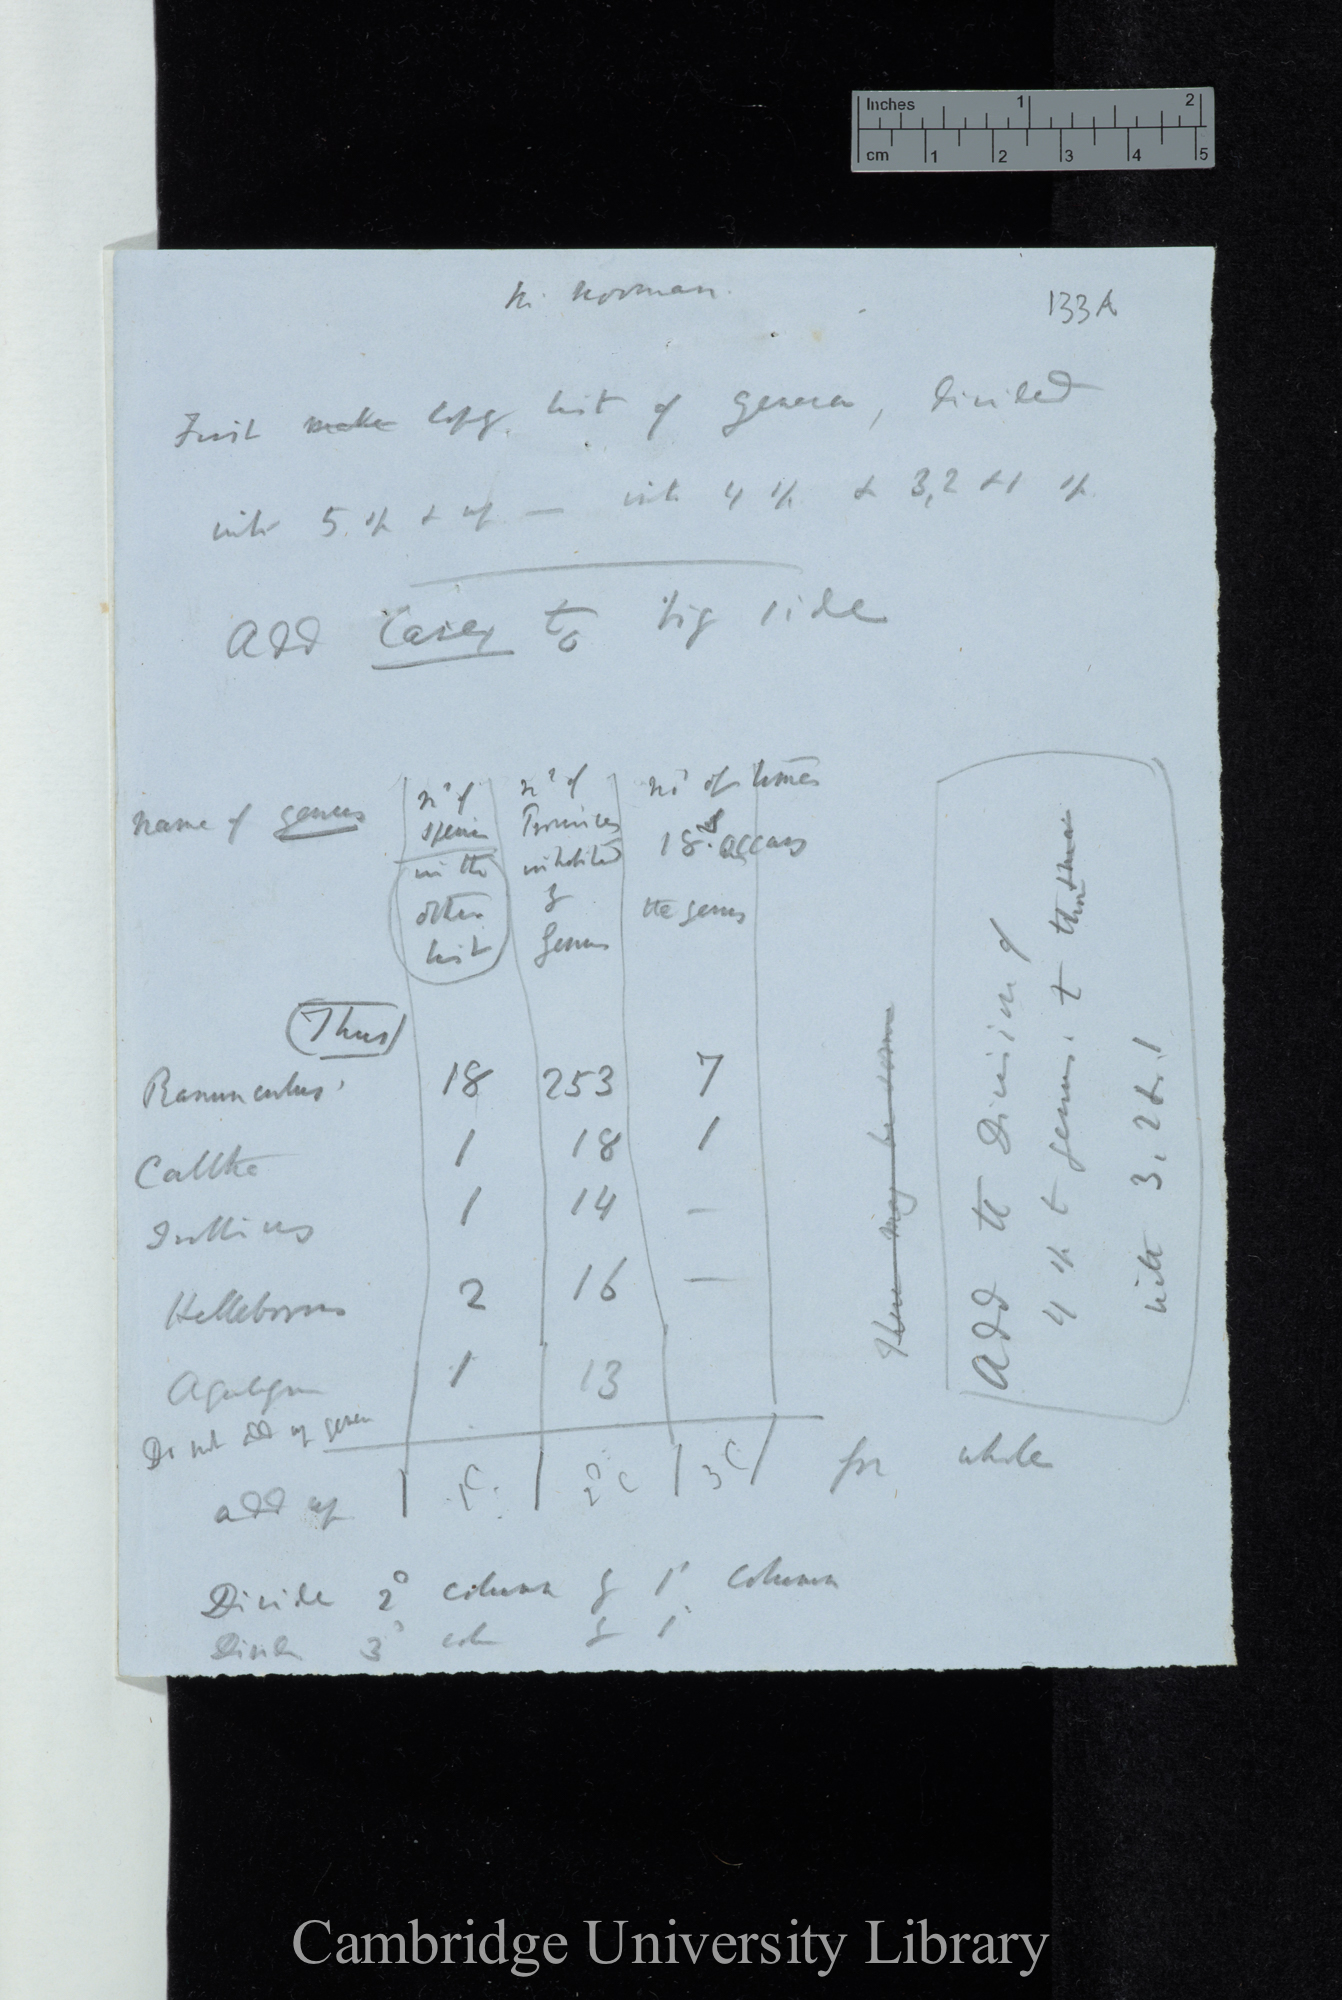 Inches 1 2
cm 1 2 3 4 5
Mr. Norman.
133A
First make copy list of genera, divided
into 5. sp & up — into 4 sp & 3, 2 & 1 sp.
Add Carex to big side
Name of genus
no of species in the other list
no of Provinces inhabited by Genus
no of times 18. occurs the genus
Thus
Ranunculus. 18 253 7
Caltha 1 18 1
Trollius 1 14 —
Helleborus 2 16 —
Aquilegia 1 13
Do not add up genera
add up 1° C. 2° C 3 C for whole
Divide 2° column by 1° column
Divide 3° col by 1°
There may be some
Add the Division of
4 sp t genus. t
with 3, 2 & 1
Cambridge University Library